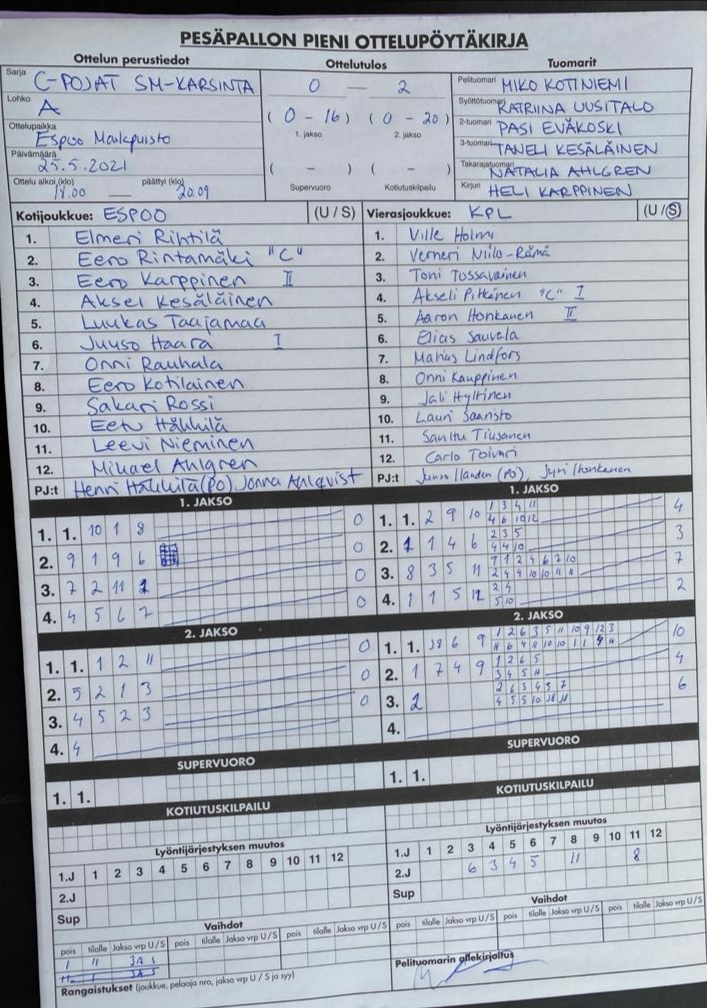 PESÄPALLON PIENI OTTELUPÖYTÄKIRJA
Ottelun perustiedot Ottelutulos Tuomarit
Sarja C-POJAT SM-KARSINTA 0 — 2 Pelituomari MIKO KOTINIEMI
Lohko A (0 - 16) (0 - 20) Syöttötuomari KATRIINA UUSITALO
1. jakso 2. jakso 2-tuomari PASI EVÄKOSKI
Ottelupaikka Espoo 3-tuomari TANELI KESÄLÄINEN
Päivämäärä 25.5.2021 ( - ) ( - ) Takarajatuomari NATALIA AHLGREN
Ottelu alkoi (klo) 18.00 — päättyi (klo) 20.09 Supervuoro Kotiutuskilpailu Kirjuri HELI KARPPINEN
Kotijoukkue: ESPOO (U / S) Vierasjoukkue: KPL (U / S)
1. Elmeri Rihtilä 1. Ville Holmi
2. Eero Rintamäki "C" 2. Verneri Niilo-Rämä
3. Eero Karppinen II 3. Toni Tossavainen
4. Aksel Kesäläinen 4. Akseli Pitkänen "C" I
5. Luukas Taajamaa 5. Aaron Honkanen II
6. Juuso Haara I 6. Elias Sauvala
7. Onni Rauhala 7. Marius Lindfors
8. Eero Kotilainen 8. Onni Kauppinen
9. Sakari Rossi 9. Jali Hyltinen
10. Eetu Häkkilä 10. Lauri Saaristo
11. Leevi Nieminen 11. Santtu Tiusanen
12. Mikael Ahlgren 12. Carlo Toivari
PJ:t Henri Häkkilä (PO) Jonna Ahlqvist PJ:t (PO), Jyri Honkanen
1. JAKSO 1. JAKSO
1. 1. 10 1 8 0 1. 1. 2 9 10 1 3 4 11 4
4 6 10 12
2. 9 1 9 6 0 2. 1 1 4 6 2 3 5 3
4 4 10
3. 7 2 11 1 0 3. 8 3 5 11 9 1 2 4 6 7 10 7
2 4 4 10 10 11 11
4. 4 5 6 7 0 4. 1 1 5 12 2 4 2
5 10
2. JAKSO 2. JAKSO
1. 1. 1 2 11 0 1. 1. 6 9 1 2 6 3 5 11 10 9 12 3 10
2. 5 2 1 3 0 2. 1 7 4 9 1 2 6 5 4
3 4 5 11
3. 4 5 2 3 0 3. 2 2 6 3 4 5 7 6
4 5 5 10
4. 4 4.
SUPERVUORO SUPERVUORO
1. 1. 1. 1.
KOTIUTUSKILPAILU KOTIUTUSKILPAILU
Lyöntijärjestyksen muutos Lyöntijärjestyksen muutos
1.J 1 2 3 4 5 6 7 8 9 10 11 12 1.J 1 2 3 4 5 6 7 8 9 10 11 12
2.J 2.J 6 3 4 5 11 8
Sup Sup
Vaihdot Vaihdot
pois tilalle Jakso vrp U / S pois tilalle Jakso vrp U / S pois tilalle Jakso vrp U / S pois tilalle Jakso vrp U/S pois tilalle Jakso vrp U/S pois tilalle Jakso vrp U/S
1 11 3A S
1 3A S
Pelituomarin allekirjoitus
Rangaistukset (joukkue, pelaaja nro, jakso vrp U / S ja syy)